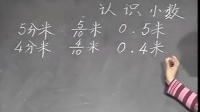 认识小数
5分米 5/10米 0.5米
4分米 4/10米 0.4米